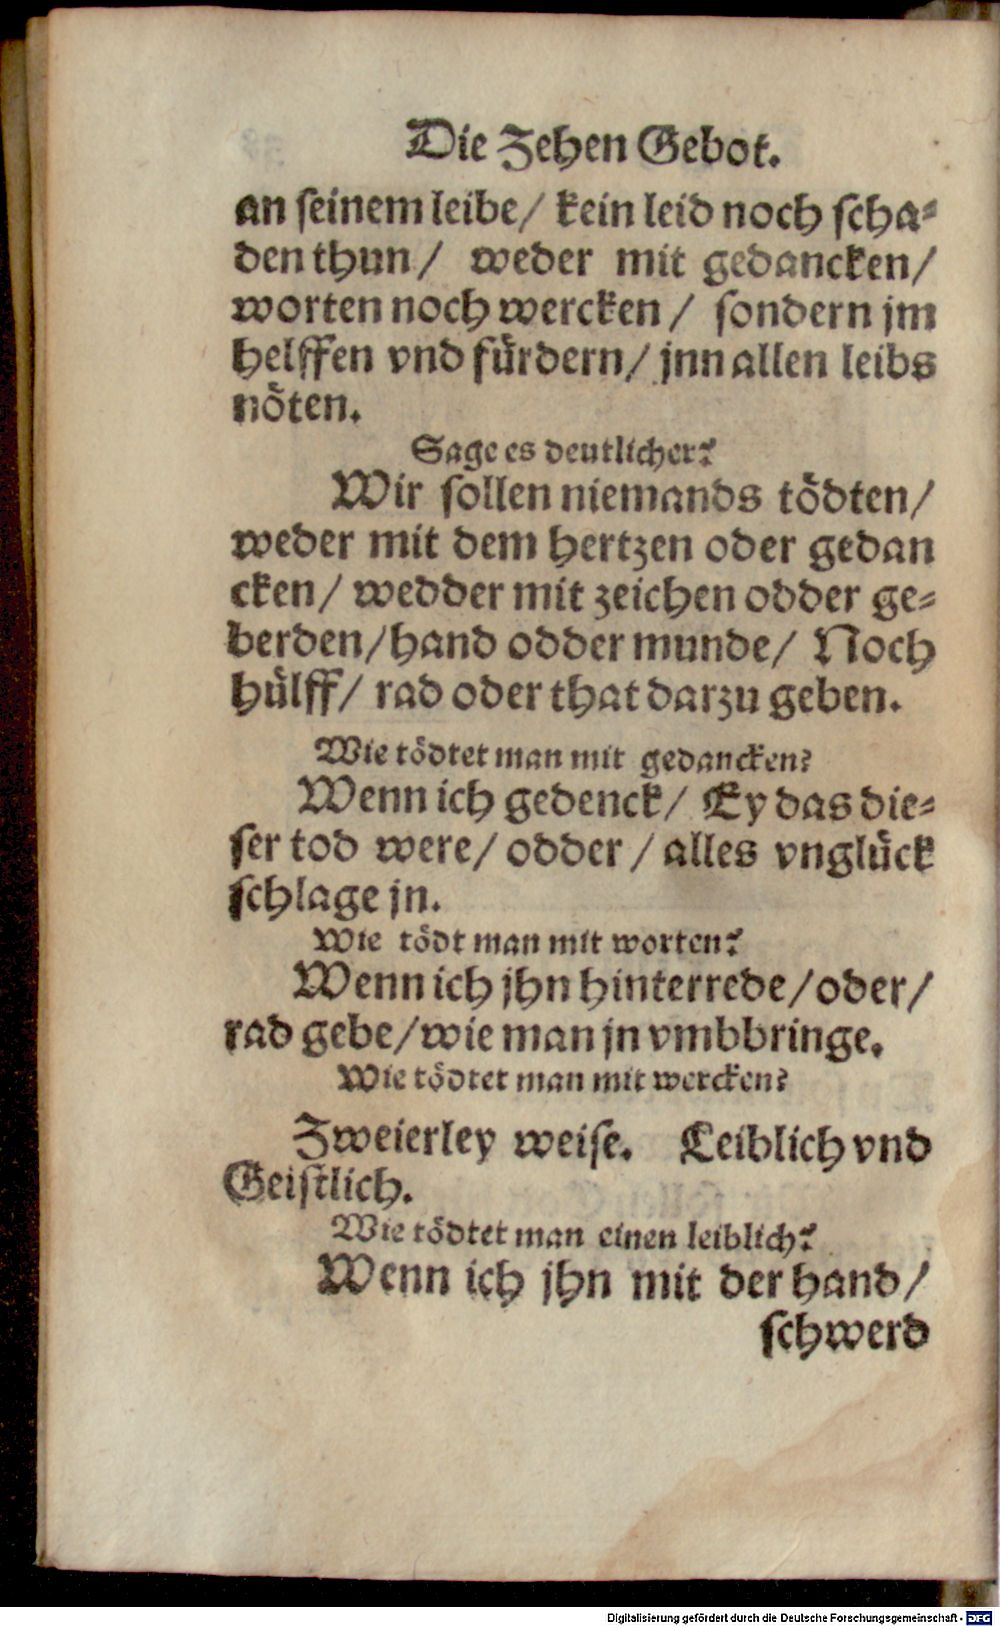 Die Zehen Gebot.
an seinem leibe/ kein leid noch scha-
den thun/ weder mit gedancken/
worten noch wercken/ sondern jm
helffen vnd fürdern/ jnn allen leibs
nöten.
Sage es deutlicher?
Wir sollen niemands tödten/
weder mit dem hertzen oder gedan
cken/ wedder mit zeichen odder ge-
berden/ hand odder munde/ Noch
hülff/ rad oder that darzu geben.
Wie tödtet man mit gedancken?
Wenn ich gedenck/ Ey das die-
ser tod were/ odder/ alles vnglück
schlage jn.
Wie tödt man mit worten?
Wenn ich jhn hinterrede/ oder/
rad gebe/ wie man jn vmbbringe.
Wie tödtet man mit wercken?
Zweierley weise. Leiblich vnd
Geistlich.
Wie tödtet man einen leiblich?
Wenn ich jhn mit der hand/
schwerd
Digitalisierung gefördert durch die Deutsche Forschungsgemeinschaft - DFG